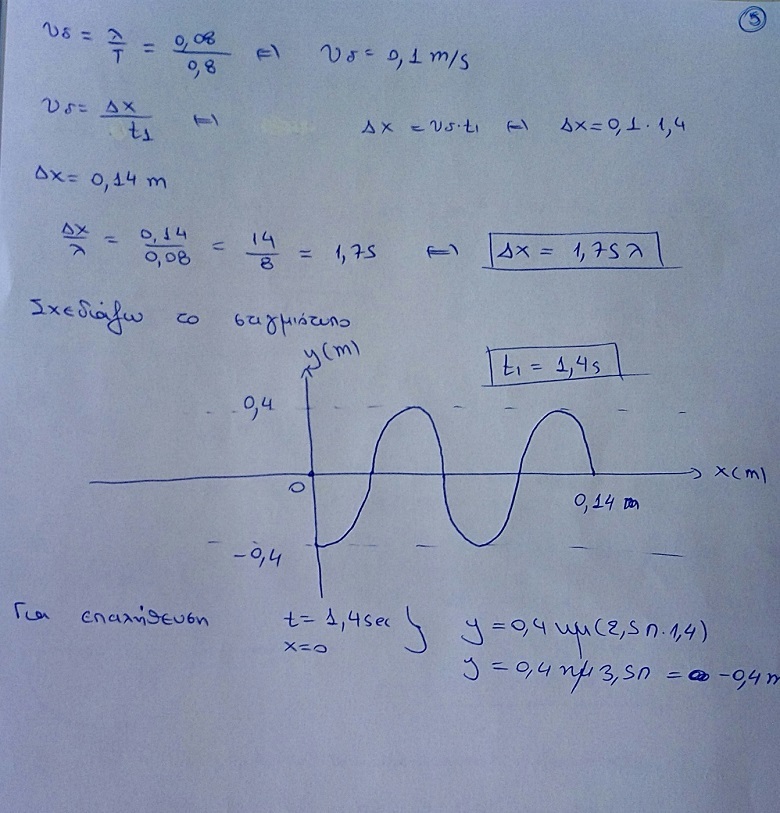 5
υδ = λ/T = 0,08/0,8 ⇔ υδ = 0,1 m/s
υδ = Δx/t1 ⇔ Δx = υδ·t1 ⇔ Δx = 0,1 · 1,4
Δx = 0,14 m
Δx/λ = 0,14/0,08 = 14/8 = 1,75 ⇔ Δx = 1,75 λ
Σχεδιάζω το στιγμιότυπο
y(m)
t1 = 1,4s
0,4
x(m)
0
0,14 m
-0,4
Για επαλήθευση t = 1,4sec } y = 0,4 ημ(2,5π·1,4)
x=0 y = 0,4 ημ 3,5π = -0,4 m